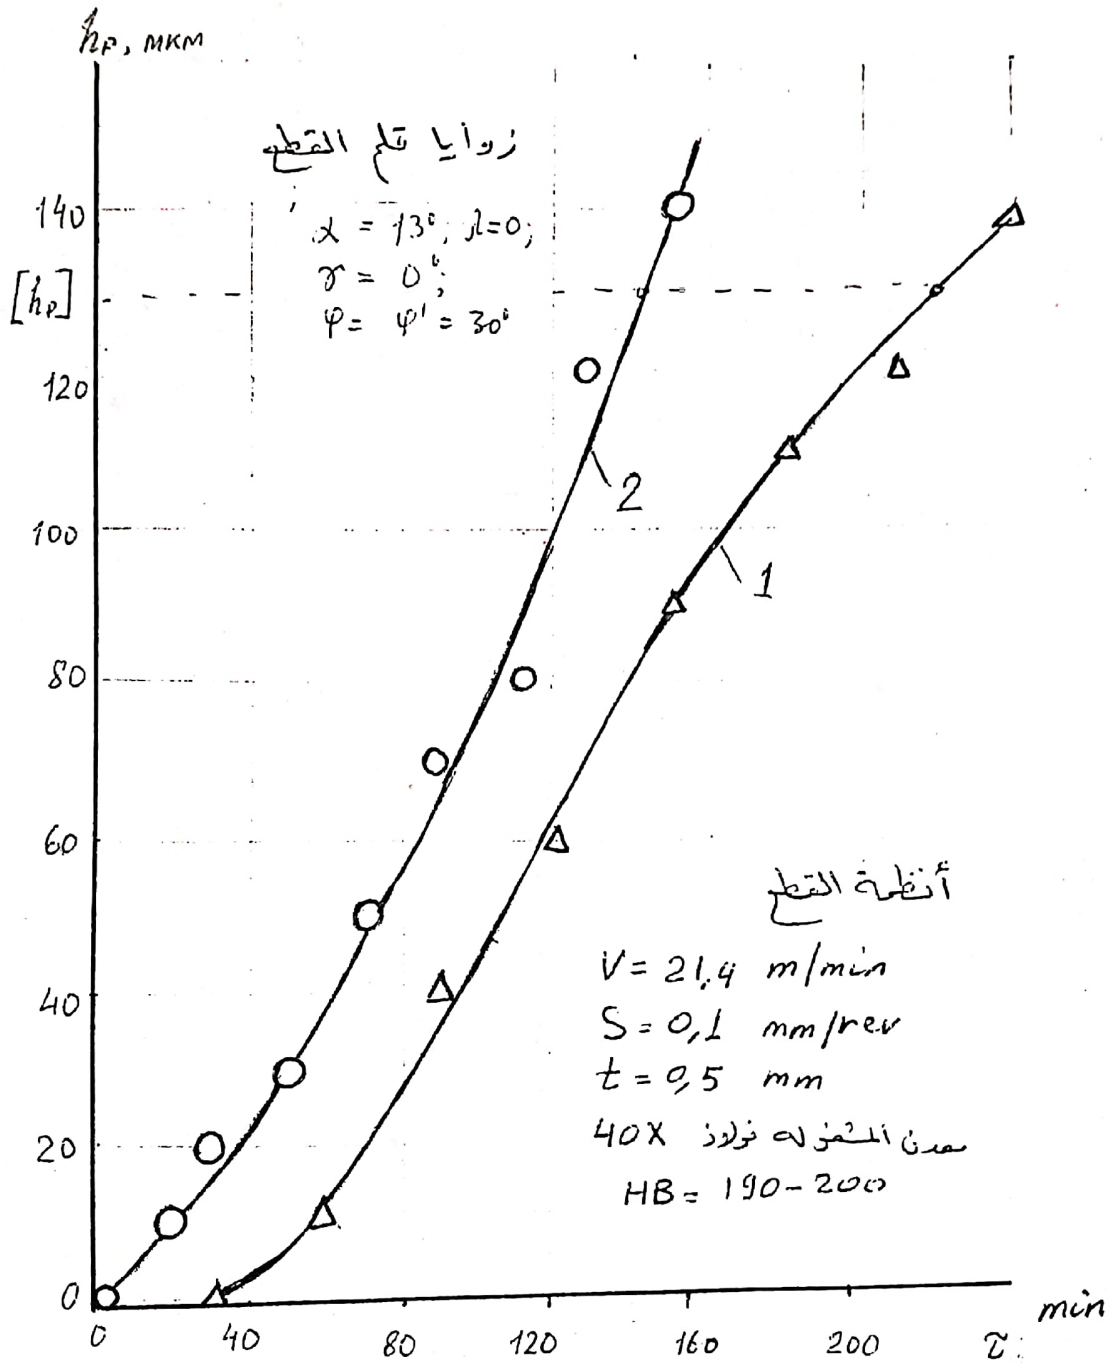 hр, мкм
زوايا قلم القطع
α = 13°; λ=0;
γ = 0°;
φ = φ' = 30°
140
[hр]
120
100
80
60
40
20
0
2
1
أنظمة القطع
V = 21,4 m/min
S = 0,1 mm/rev
t = 0,5 mm
معدن المشغولة فولاذ 40X
HB = 190-200
0 40 80 120 160 200 τ min